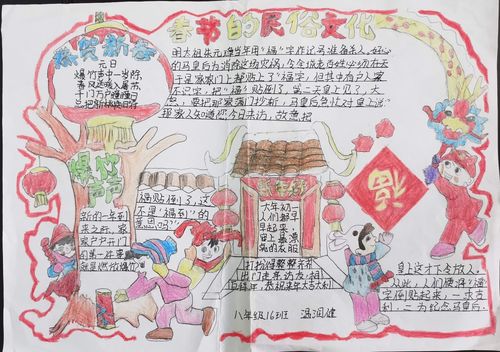 春节的民俗文化
恭贺新春
元日
爆竹声中一岁除，
春风送暖入屠苏。
千门万户曈曈日
总把新桃换旧符
明太祖朱元璋当年用“福”字作记号准备杀人。好心
的马皇后为消除这场灾祸，令全城老百姓必须在天
于是家家门上都贴上了“福”字，但其中有户人家
不识字，把“福”贴倒了，第二天皇上见了，大
要把那家满门抄斩，马皇后急忙对皇上说：
那家人知道您今日来访，故意把
福贴倒了，这
不是“福到”的
意思吗？”
爆竹
声声
新的一年到
来之际，家
家户户开门
的第一件事
就是燃放爆竹
大年初一
人们都早
早起来，
穿上最漂
亮的衣服
打扮得整整齐齐
出门去走访友，相
互拜年，恭祝来年大吉利
福
皇上这才下令放人，
从此，人们便将“福”
字倒贴起来，一求吉
利，二为纪念马皇后。
八年级162班 冯润健